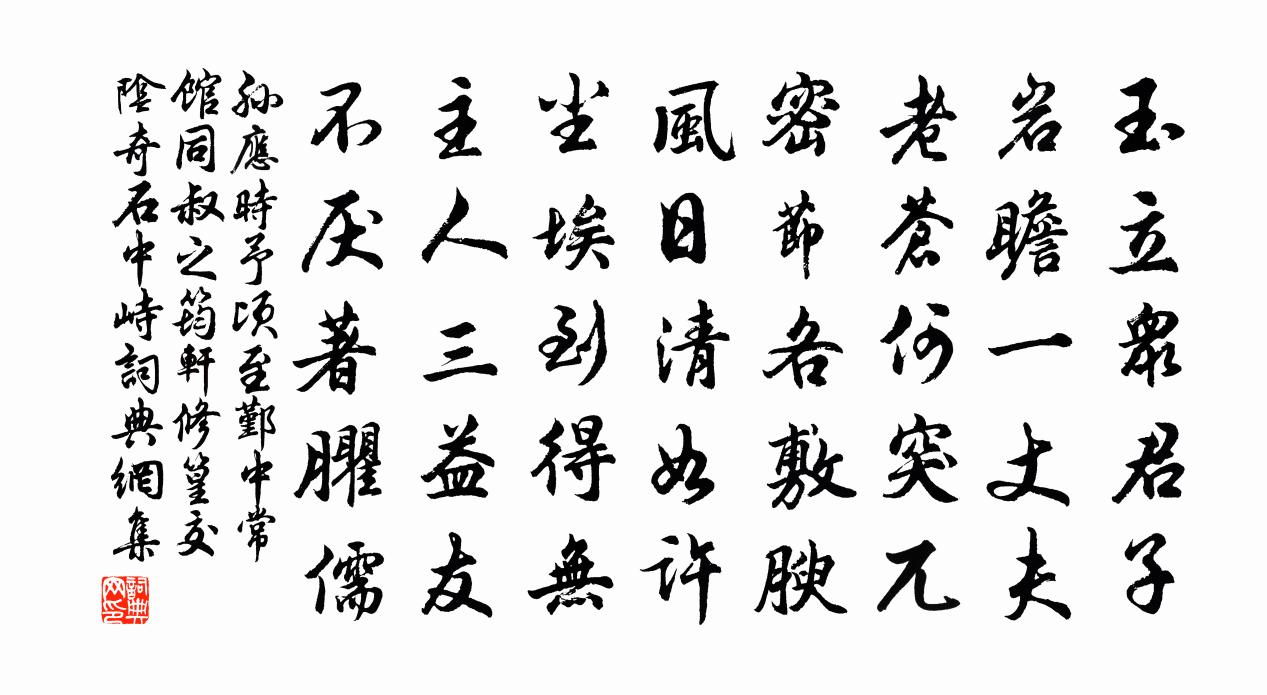 玉立眾君子
岩瞻一丈夫
老蒼何突兀
密節各敷腴
風日清如許
尘埃到得無
主人三益友
不厌著臞儒
孙應時予頃至鄞中常
館同叔之筠軒修篁交
陰奇石中峙詞典網集
詞典网印